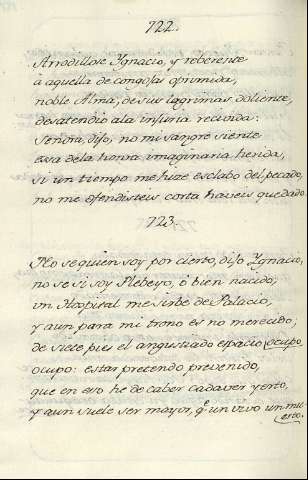 722.
Arrodillose Ygnacio, y reberente
à aquella de congojas oprimida,
noble Alma, de sus lagrimas doliente,
desatendio ala injuria recivida:
Señora, dijo, no mi sangre siente
essa dela honra imaginaria herida,
si un tiempo me hize esclabo del pecado,
no me ofendisteis corta haveis quedado.
723.
No se quien soy por cierto, dijo Ygnacio,
no se si soy Plebeyo, ò bien nacido;
vn Hospital me sirbe de Palacio,
y aun para mi trono es no merecido;
de siete pies el angustiado espacio ocupo,
ocupo: estar pretendo prevenido,
que en eso he de caber cadaver yerto,
y aun suele ser mayor, qe un vivo un mu-
erto.